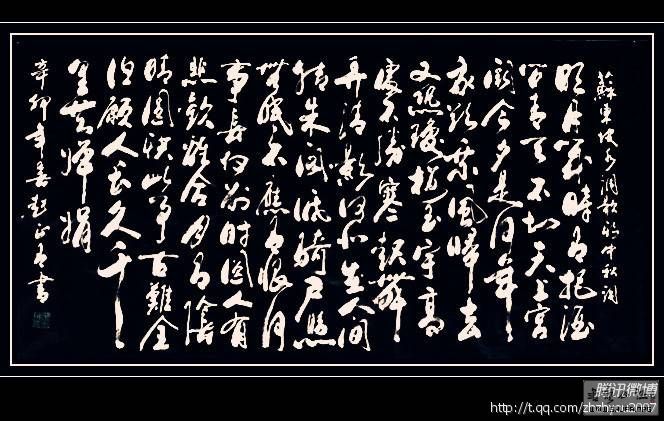 蘇東坡水調歌頭中秋詞
明月幾時有把酒
問青天不知天上宮
闕今夕是何年
我欲乘風歸去
又恐瓊樓玉宇高
處不勝寒起舞
弄清影何似在人間
轉朱閣低綺戶照
無眠不應有恨何
事長向別時圓人有
悲歡離合月有陰
晴圓缺此事古難全
但願人長久千
里共嬋娟
辛卯年春書
腾讯微博
http://t.qq.com/zhzhyou2007